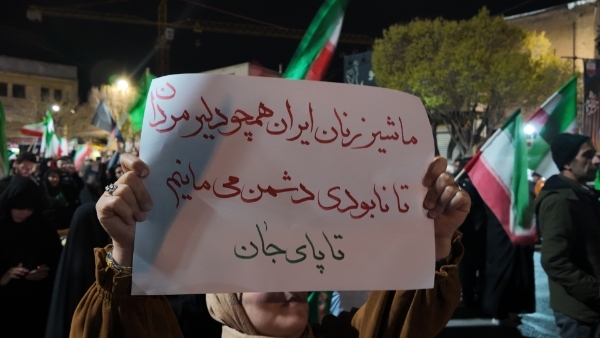 ما شیرزنان ایران همچو دلیر مردان
تا نابودی دشمن می مانیم
تا پای جان